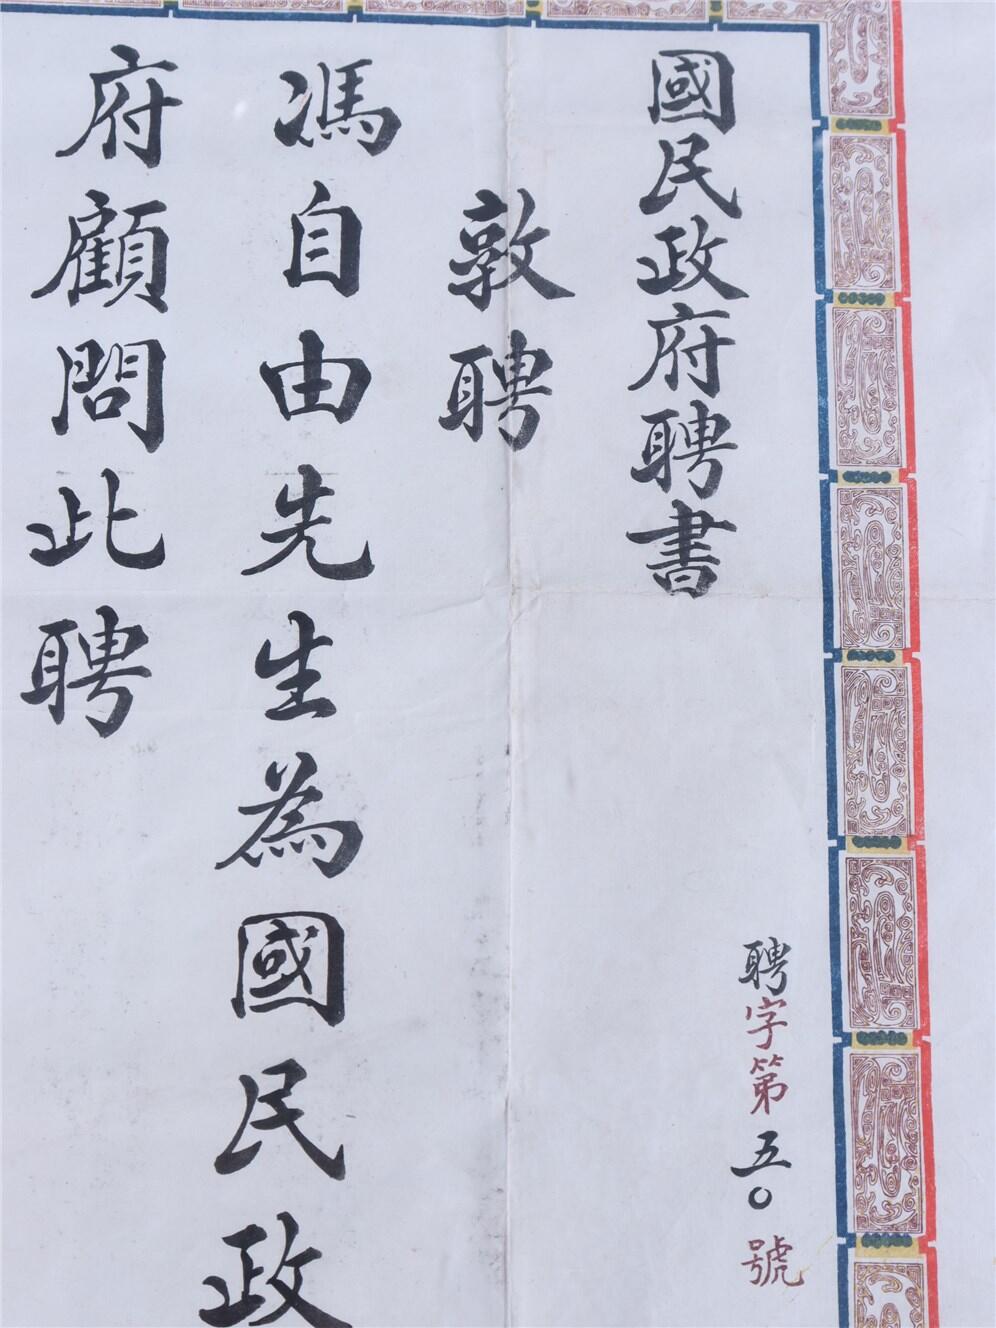 國民政府聘書
聘字第五〇號
敦聘
馮自由先生為國民政
府顧問此聘